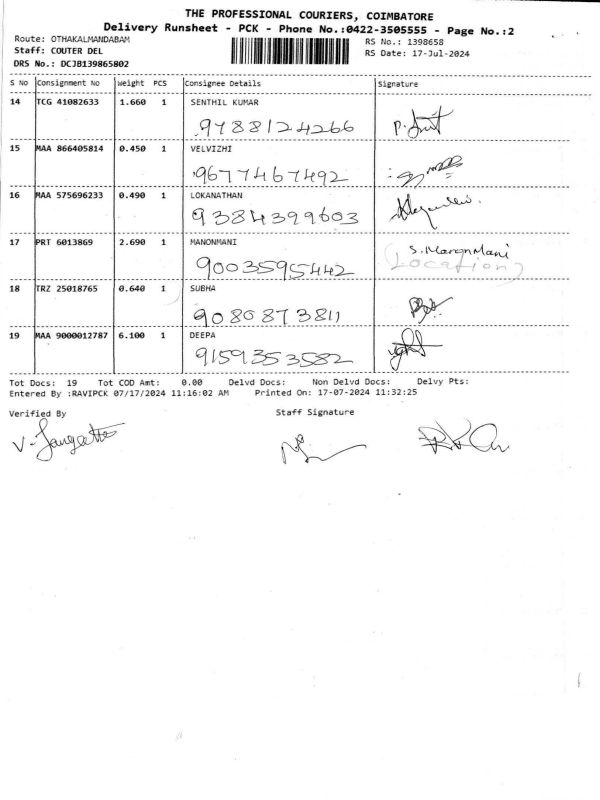 THE PROFESSIONAL COURIERS, COIMBATORE
Delivery Runsheet - PCK - Phone No.:0422-3505555 - Page No.:2
Route: OTHAKALMANDABAM
RS No.: 1398658
Staff: COUTER DEL
RS Date: 17-Jul-2024
DRS No.: DCJB139865802
S No Consignment No Weight PCS Consignee Details Signature
14 TCG 41082633 1.660 1 SENTHIL KUMAR
9788124266
15 MAA 866405814 0.450 1 VELVIZHI
9677467492
16 MAA 575696233 0.490 1 LOKANATHAN
9384399603
17 PRT 6013869 2.690 1 MANONMANI
S. ManonMani
9003595442 (Location)
18 TRZ 25018765 0.640 1 SUBHA
9080873811
19 MAA 9000012787 6.100 1 DEEPA
9159353582
Tot Docs: 19 Tot COD Amt: 0.00 Delvd Docs: Non Delvd Docs: Delvy Pts:
Entered By :RAVIPCK 07/17/2024 11:16:02 AM Printed On: 17-07-2024 11:32:25
Verified By Staff Signature